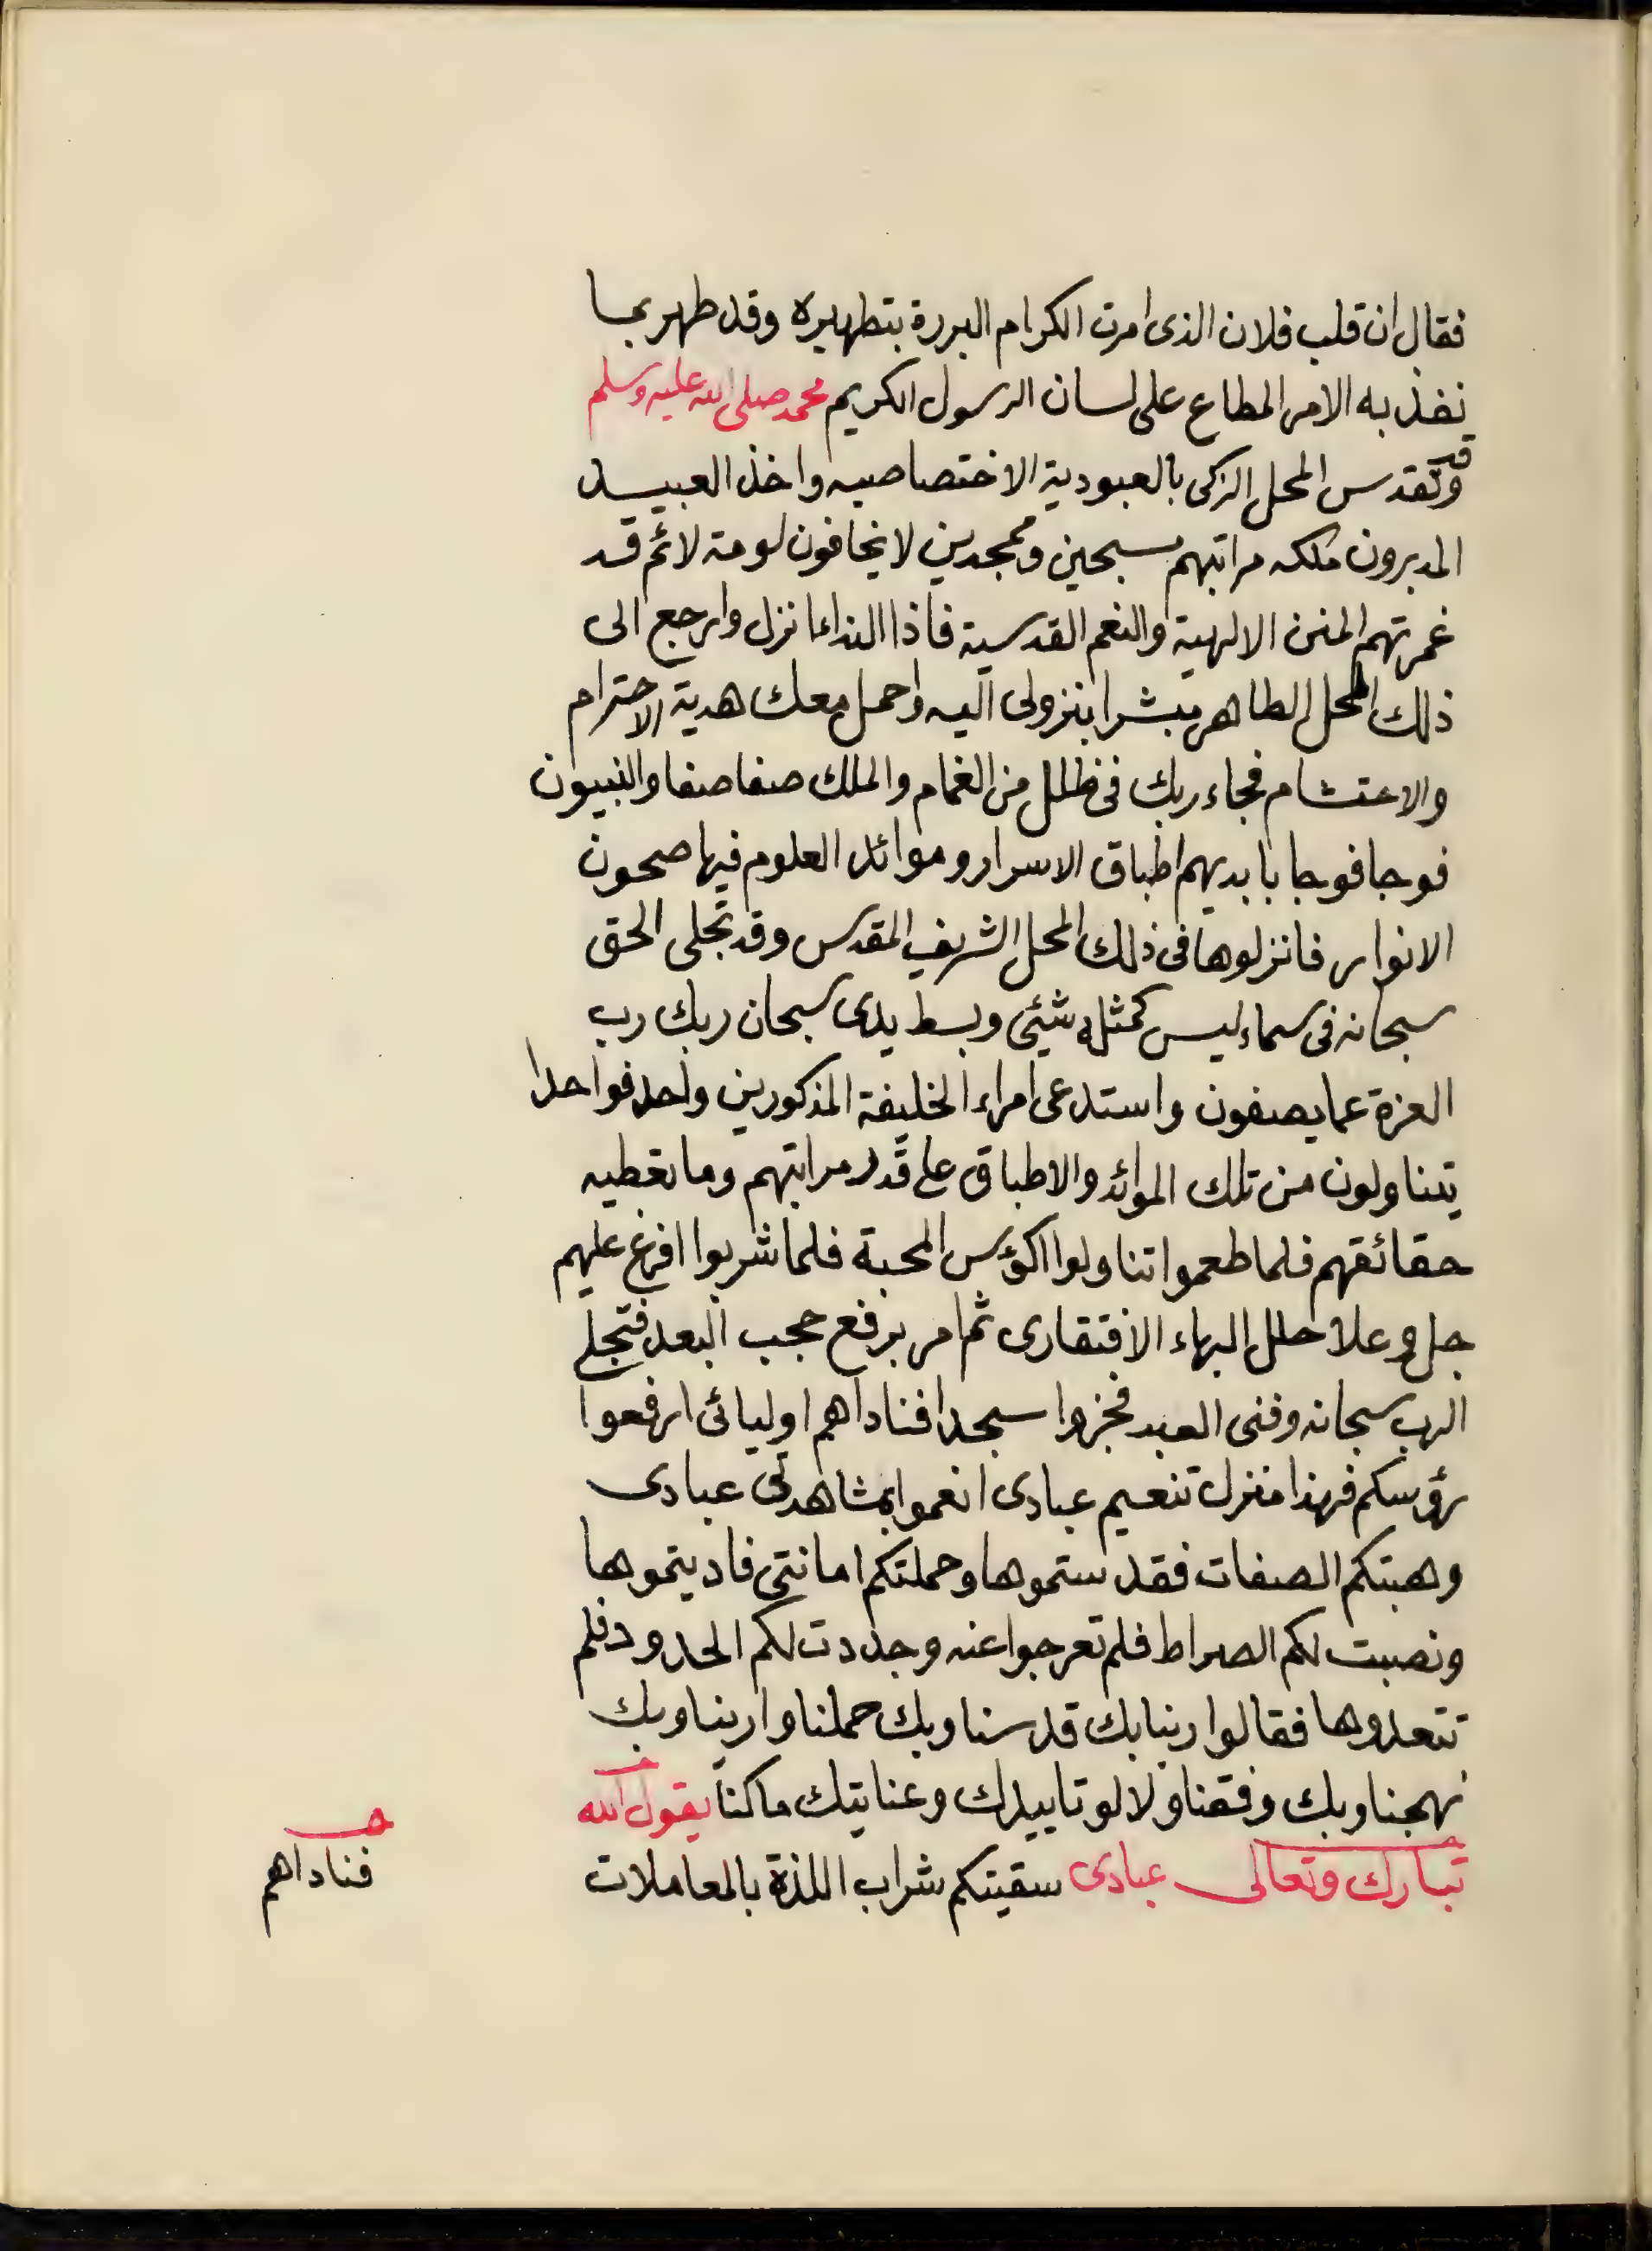 فقال ان قلب فلان الذى امرت الكرام البررة بتطهيره وقد طهر بما
نفذ به الامر المطاع على لسان الرسول الكريم محمد صلى الله عليه وسلم
وقد تقدس المحل الزكى بالعبودية الاختصاصيه واخذ العبيد
المدبرون ملكه مراتبهم مسبحين وممجدين لا يخافون لومة لائم قد
غمرتهم المنن الالهية والنعم القدسية فاذا النداء انزل وارجع الى
ذلك المحل الطاهر مبشرا بنزولى اليه واحمل معك هدية الاحترام
والاعتشام فجاء ربك فى ظلل من الغمام والملك صفا صفا والنبيون
فوجا فوجا بايديهم اطباق الاسرار وموائد العلوم فيها صحون
الانوار فانزلوها فى ذلك المحل الشريف المقدس وقد تجلى الحق
سبحانه فى سماء ليس كمثله شيئ وبسط يدى سبحان ربك رب
العزة عما يصفون واستدعى امراء الخليفة المذكورين واحد فواحدا
يتناولون من تلك الموائد والاطباق على قدر مراتبهم وما تعطيه
حقائقهم فلما طعموا تناولوا اكؤس المحبة فلما شربوا افرغ عليهم
جل وعلا حلل البهاء الافتقارى ثم امر برفع حجب البعد فتجلى
الرب سبحانه وفنى العبد فخروا سجدا فناداهم اوليائى ارفعوا
رؤسكم فهذا منزل تنعيم عبادى انعموا بمشاهدتى عبادى
وهبتكم الصفات فقد ستموها وحملتكم امانتى فاديتموها
ونصبت لكم الصراط فلم تعرجوا عنه وجددت لكم الحدود فلم
تتعدوها فقالوا ربنا بك قدسنا وبك حملنا وارينا وبك
نهجنا وبك وفقنا ولا لو تاييدك وعنايتك ما كنا يقول الله
تبارك وتعالى عبادى سقيتكم شراب اللذة بالمعاملات
فناداهم